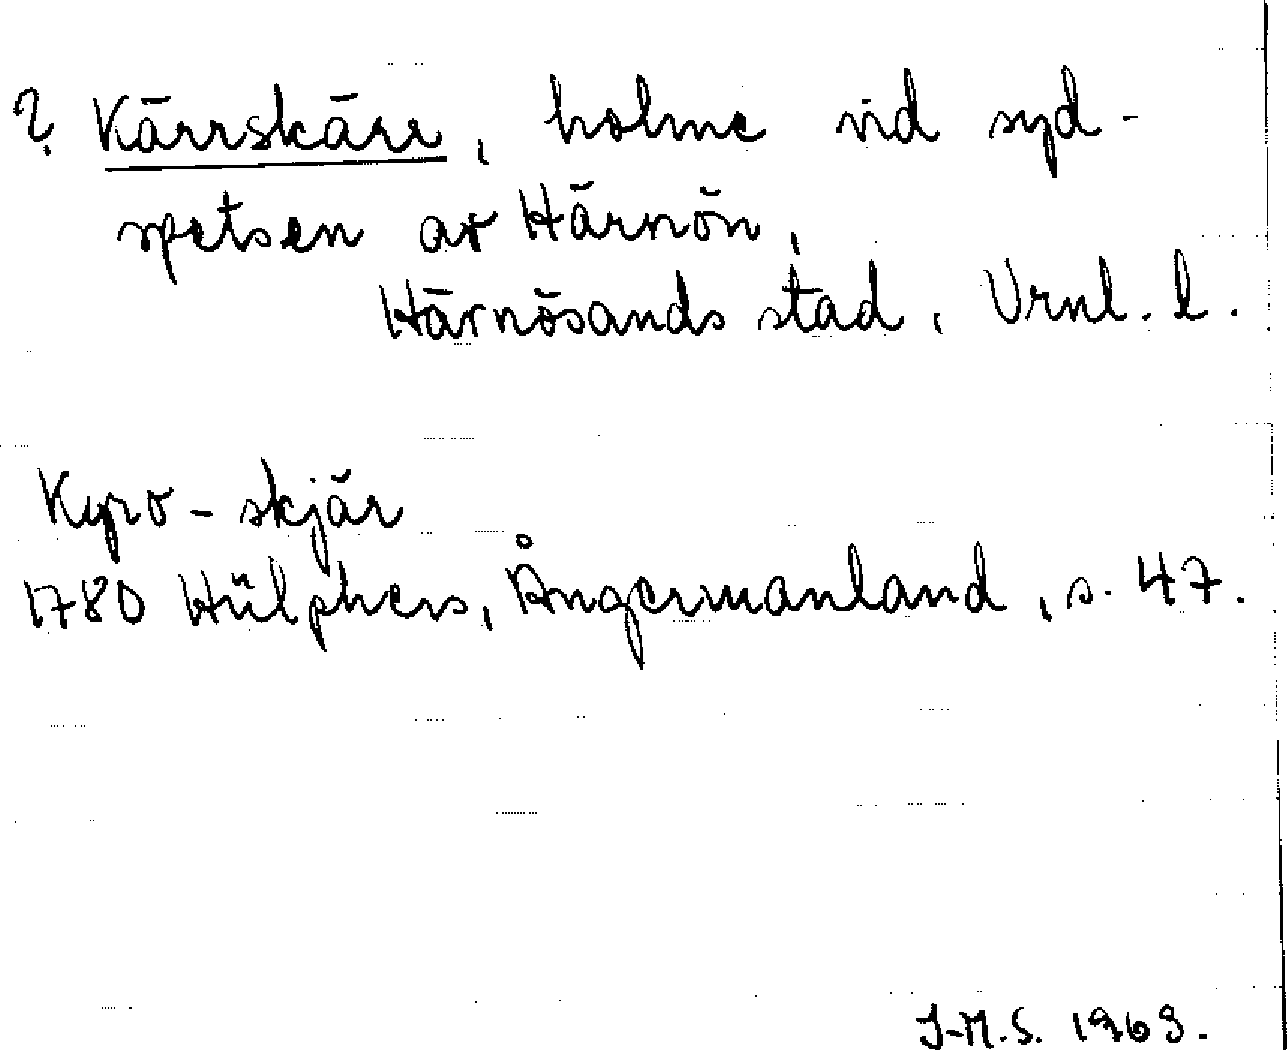 ? Kärrskäre, holme vid syd-
spetsen av Härnön,
Härnösands stad, Vrnl. l.
Kypo-skjär
1780 Hülphers, Ångermanland, s. 47.
J-M.S. 1969.